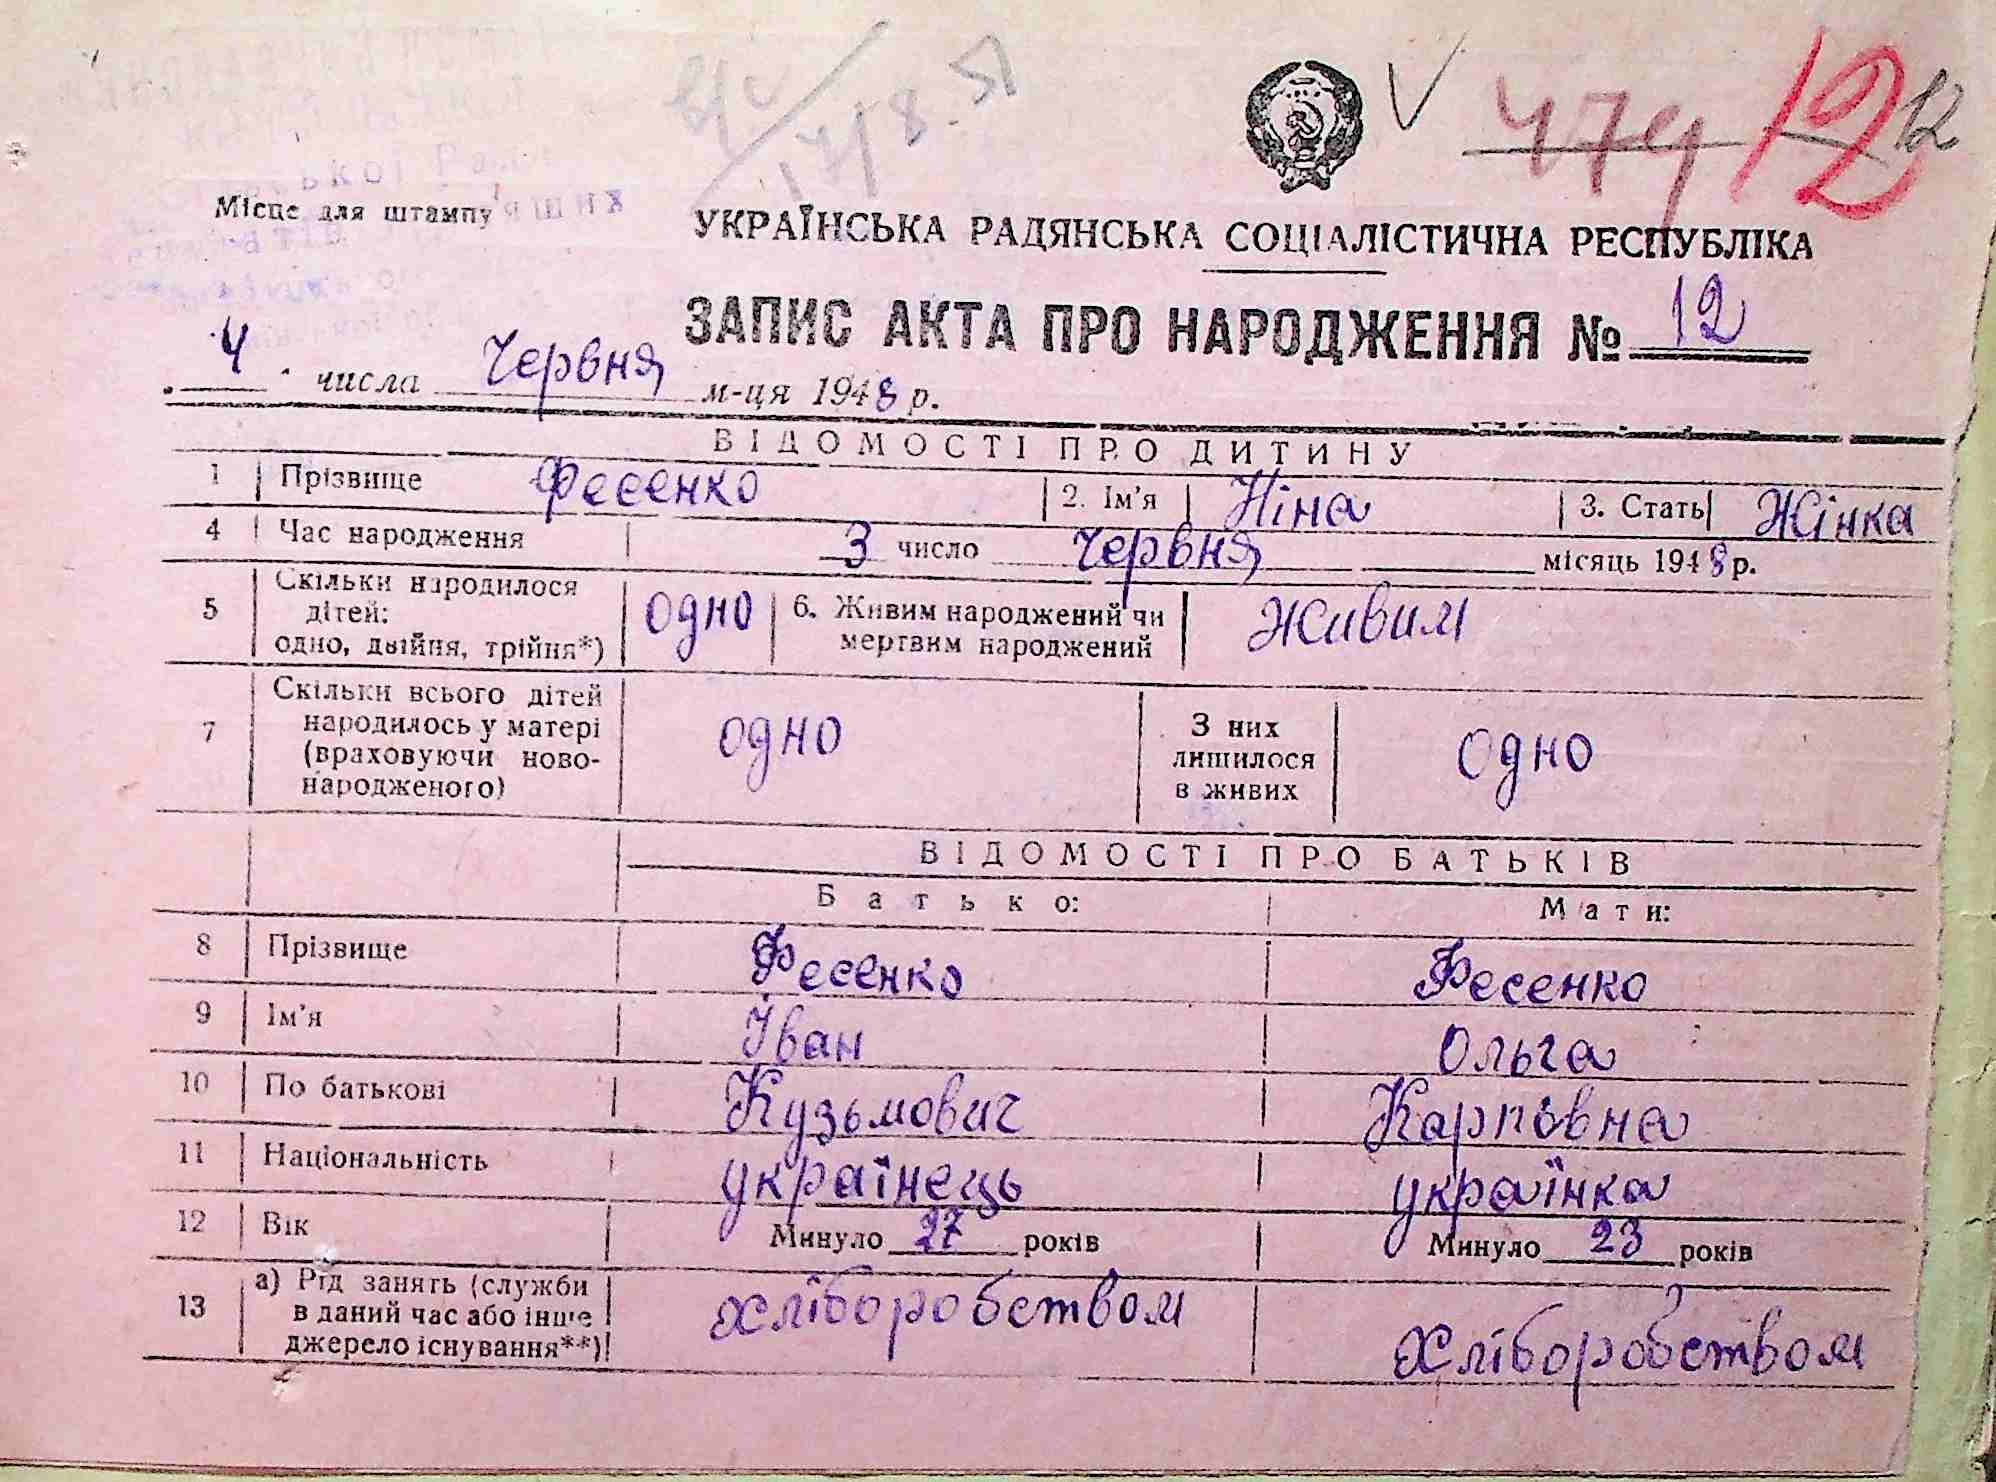 V 479 12 12
17/8.51
Місце для штампу
УКРАЇНСЬКА РАДЯНСЬКА СОЦІАЛІСТИЧНА РЕСПУБЛІКА
ЗАПИС АКТА ПРО НАРОДЖЕННЯ № 12
„4" числа Червня м-ця 1948 р.
ВІДОМОСТІ ПРО ДИТИНУ
1 Прізвище Фесенко 2. Ім'я Ніна 3. Стать Жінка
4 Час народження 3 число Червня місяць 1948 р.
5 Скільки народилося
дітей:
одно, двійня, трійня*) одно 6. Живим народжений чи
мертвим народжений Живим
7 Скільки всього дітей
народилось у матері
(враховуючи ново-
народженого) одно З них
лишилося
в живих одно
ВІДОМОСТІ ПРО БАТЬКІВ
Батько: Мати:
8 Прізвище Фесенко Фесенко
9 Ім'я Іван Ольга
10 По батькові Кузьмович Карповна
11 Національність українець українка
12 Вік Минуло 27 років Минуло 23 років
13 а) Рід занять (служби
в даний час або інше
джерело існування**) хліборобством хліборобством